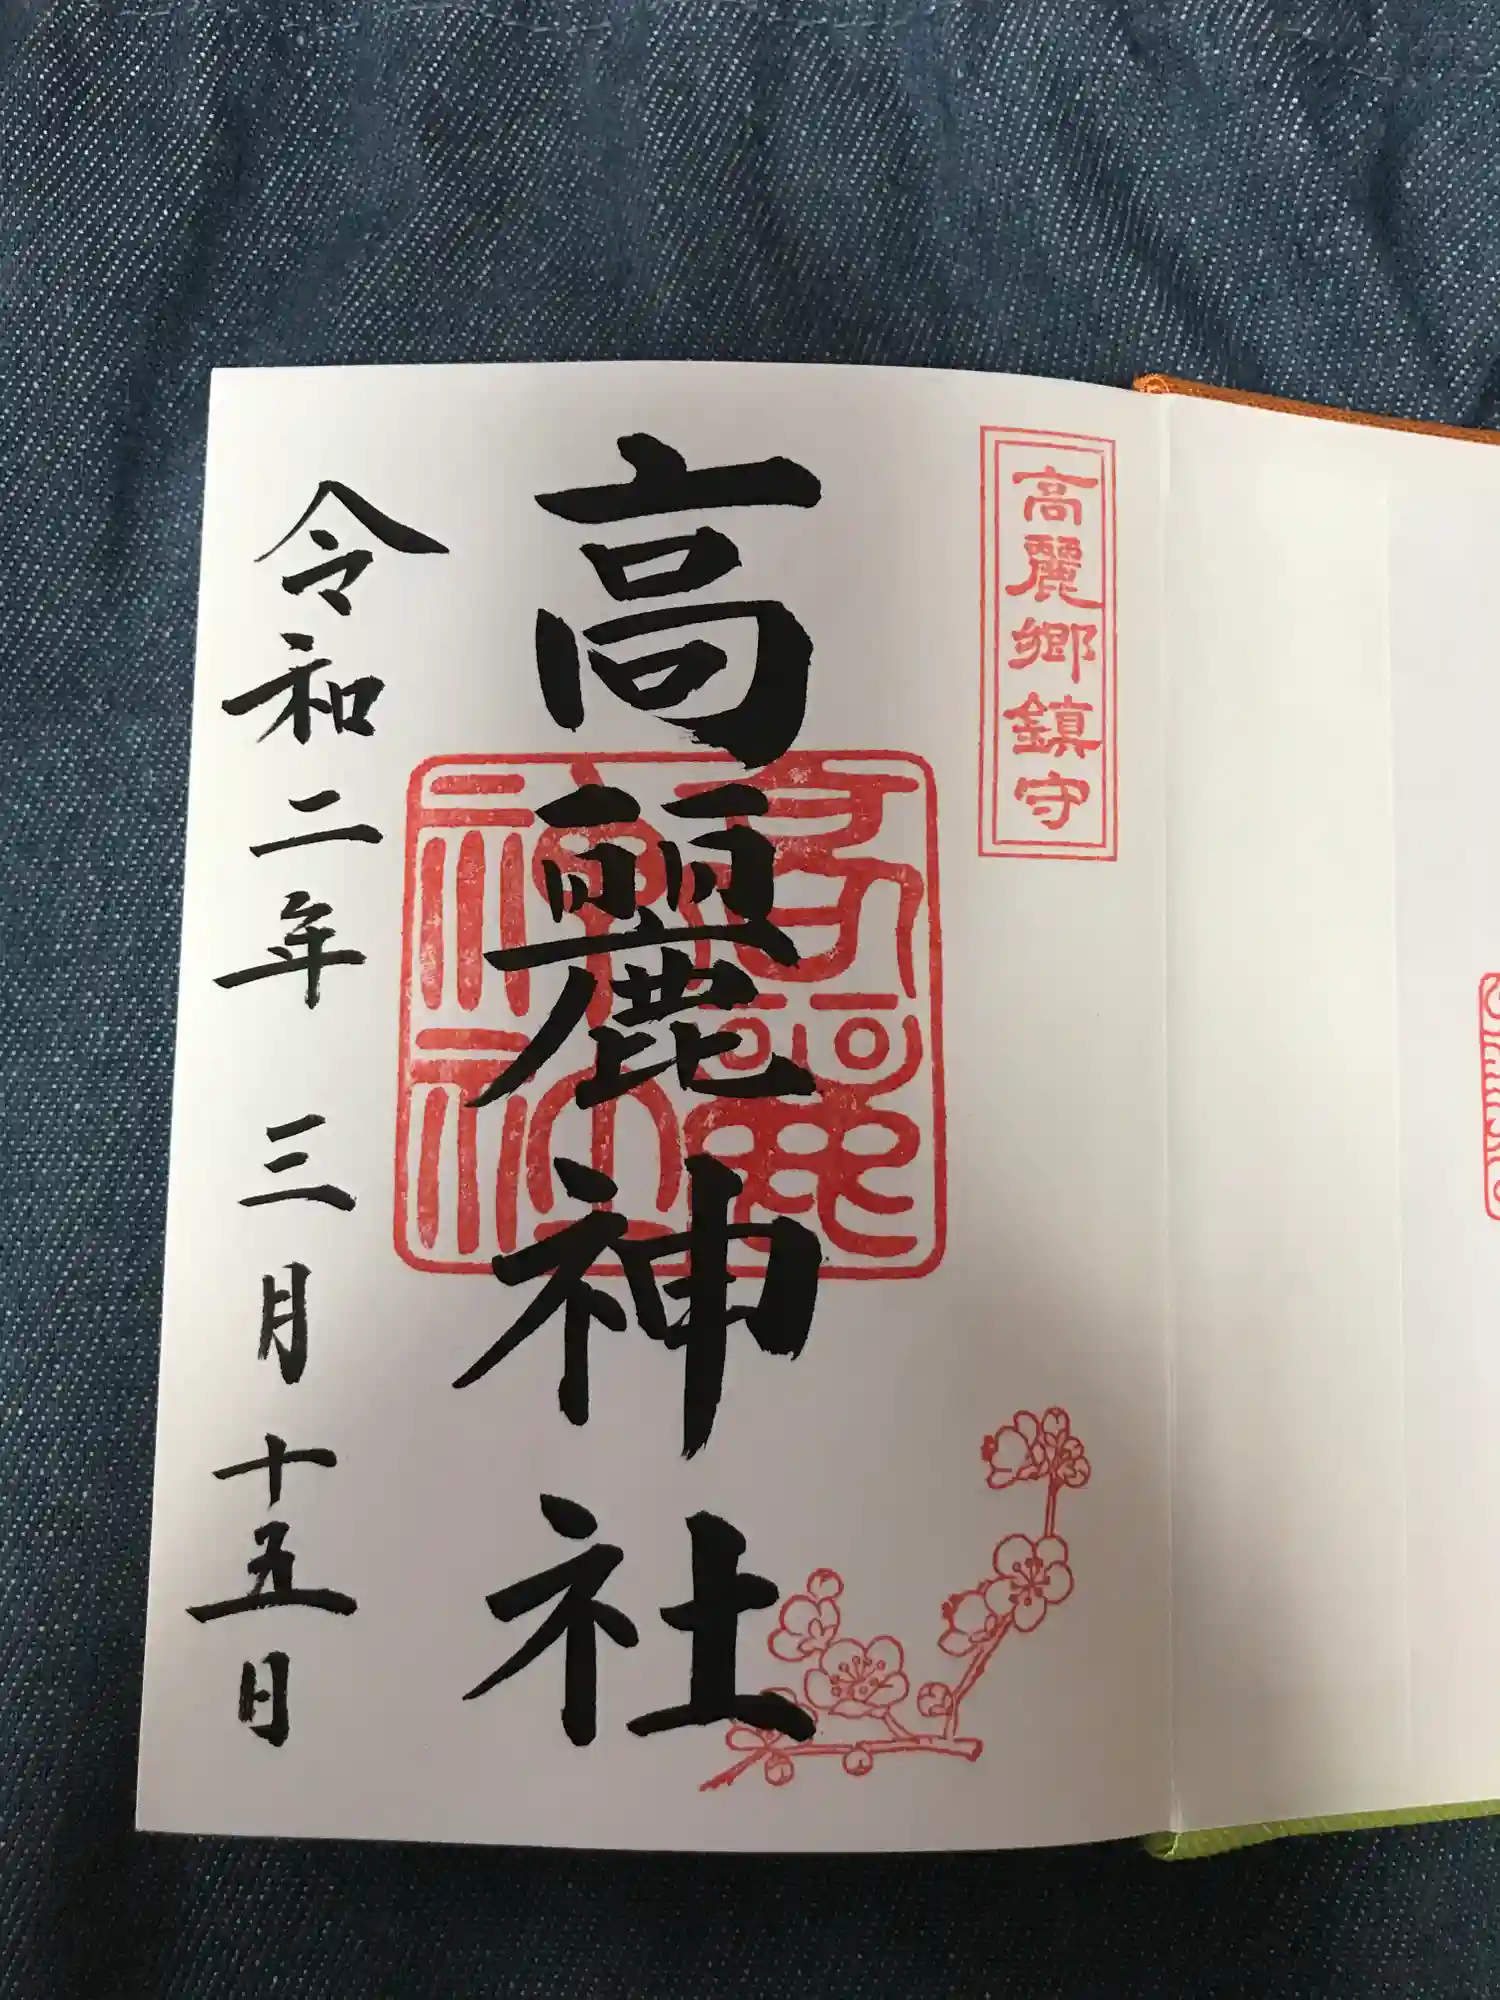 高麗郷鎮守
高麗神社
令和二年 三月十五日